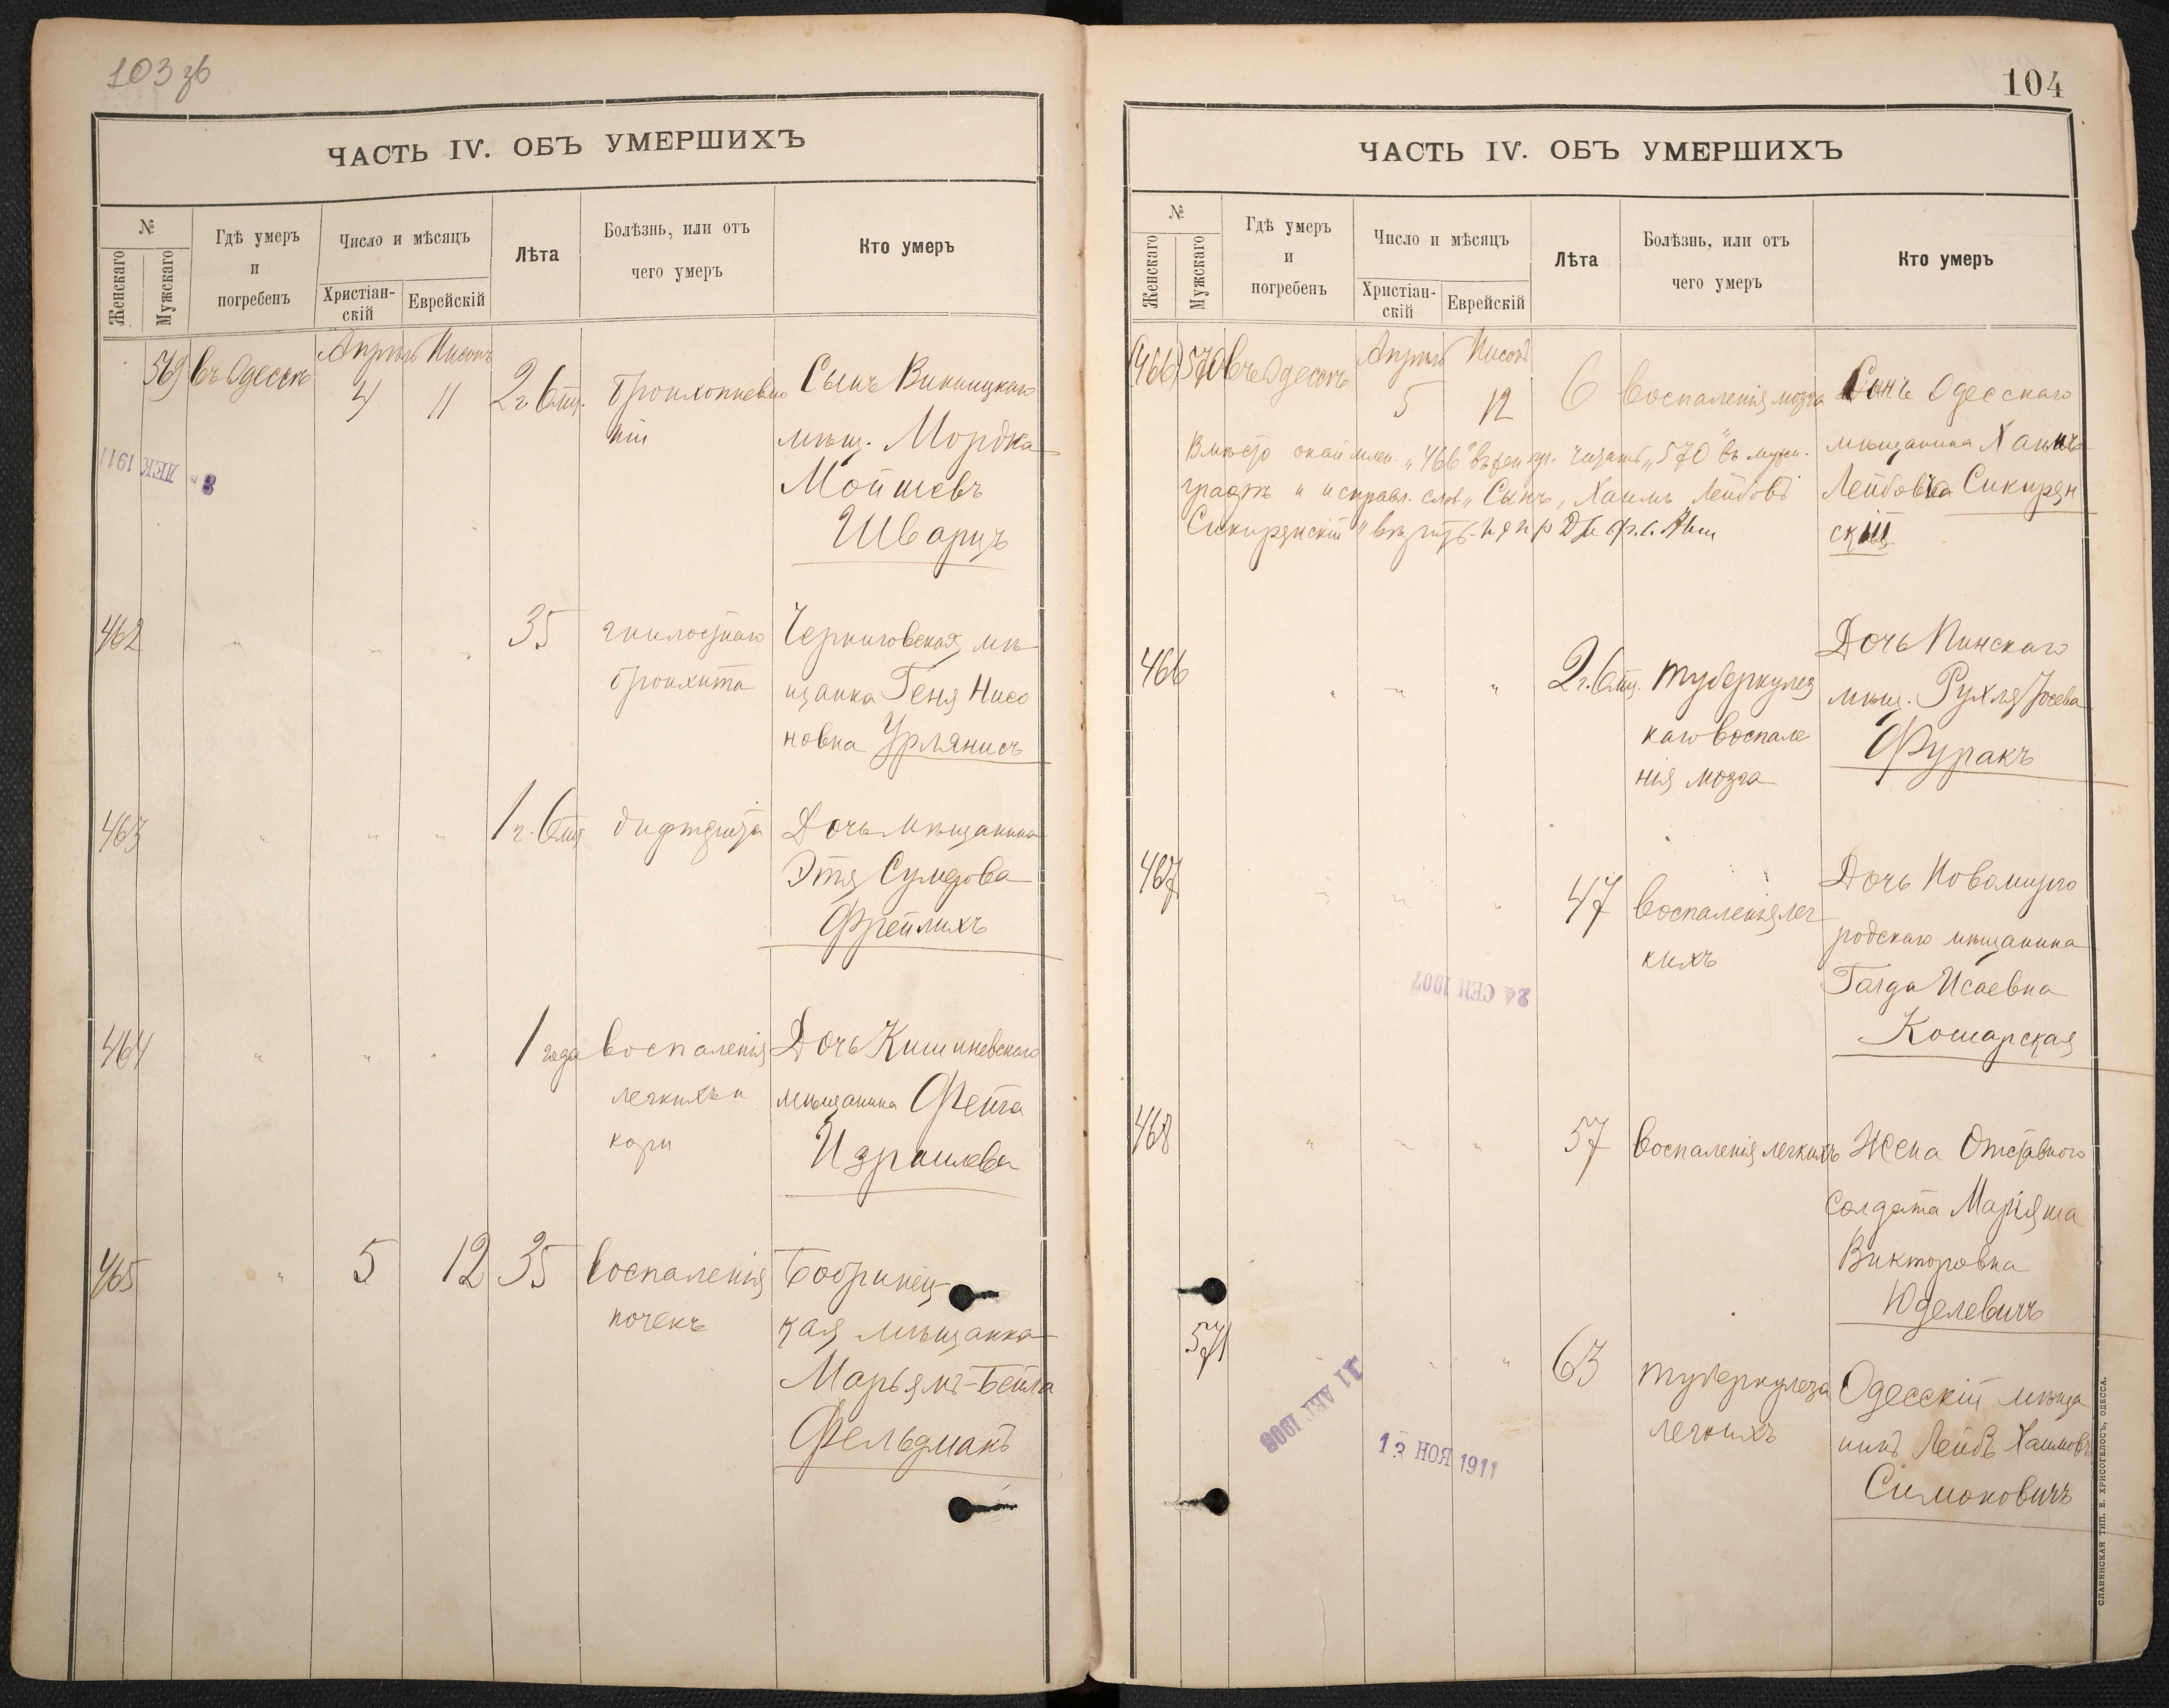 103 зб
ЧАСТЬ IV. ОБЪ УМЕРШИХЪ
№
Женскаго
Мужскаго
Гдѣ умеръ
и
погребенъ
Число и мѣсяцъ
Христіан-
скій
Еврейскій
Лѣта
Болѣзнь, или отъ
чего умеръ
Кто умеръ
569 въ Одессѣ Апрѣль 4 Нисонъ 11 2 г. 6 мц. бронхопневмо
ніи
Сынъ Винницкаго
мѣщ. Мордка
Мойшевъ
Шварцъ
ДЕК 1911
462 " " " 35 гнилостнаго
бронхита
Черниговская мѣ
щанка Геня Нисо
новна Урлянисъ
463 " " " 1 г. 6 мц дифтерита
Дочь мѣщанина
Этя Сумерова
Фрейлихъ
464 " " " 1 года воспаленія
легкихъ и
кори
Дочь Кишиневскаго
мѣщанина Фейга
Израилева
465 " 5 12 35 воспаленія
почекъ
Бобринец
кая мѣщанка
Марьямъ-Бейла
Фельдманъ
104
ЧАСТЬ IV. ОБЪ УМЕРШИХЪ
№
Женскаго
Мужскаго
Гдѣ умеръ
и
погребенъ
Число и мѣсяцъ
Христіан-
скій
Еврейскій
Лѣта
Болѣзнь, или отъ
чего умеръ
Кто умеръ
(466) 570 въ Одессѣ Апрѣль 5 Нисонъ 12 6 воспаленія мозга
Сынъ Одесскаго
мѣщанина Хаимъ
Лейбовъ Сикирян
скій
Вмѣсто "466" въ жен. гр. читать "570" въ муж.
графѣ и исправл. слов. "Сынъ, Хаимъ Лейбовъ
Сикирянскій"
466 " " " 2 г. 6 мц. туберкулез
наго воспале
нія мозга
Дочь Пинскаго
мѣщ. Рухля Іосева
Фуракъ
467 " " " 47 воспаленія лег
кихъ
Дочь Новомирго
родскаго мѣщанина
Голда Исаевна
Кошарская
24 СЕН 1907
468 " " " 57 воспаленія легкихъ
Жена Отставного
Солдата Маріяша
Викторовна
Юделевичъ
571 " " 63 туберкулеза
легкихъ
Одесскій мѣща
нинъ Лейбъ Хаимовъ
Симоновичъ
11 АВГ 1908
13 НОЯ 1911
СЛАВЯНСКАЯ ТИП. Е. ХРИСОГЕЛОСЪ, ОДЕССА.